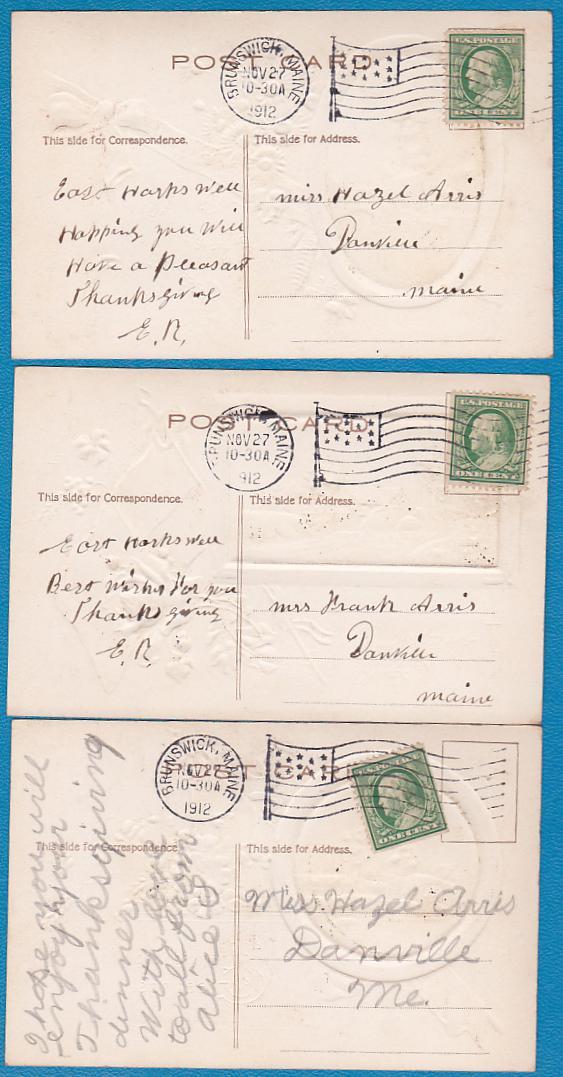 POST CARD
BRUNSWICK, MAINE
NOV 27
10-30A
1912
U.S. POSTAGE
ONE CENT
This side for Correspondence.
This side for Address.
East Harpswell
Happing you will
Have a pleasant
Thanksgiving
E. R.
miss Hazel Arris
Danville
maine
POST CARD
BRUNSWICK, MAINE
NOV 27
10-30A
1912
U.S. POSTAGE
ONE CENT
This side for Correspondence.
This side for Address.
East Harpswell
Best wishes for you
Thanksgiving
E. R.
mrs Frank Arris
Danville
maine
POST CARD
BRUNSWICK, MAINE
NOV 27
10-30A
1912
U.S. POSTAGE
ONE CENT
This side for Correspondence.
This side for Address.
I hope you will
enjoy your
Thanksgiving
dinner
With love
to all from
Alice
Miss Hazel Arris
Danville
Me.